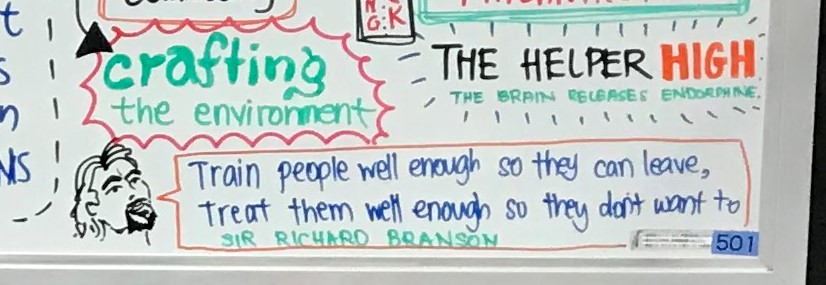 G:K
crafting
the environment
THE HELPER HIGH
THE BRAIN RELEASES ENDORPHINE.
Train people well enough so they can leave,
treat them well enough so they don't want to
SIR RICHARD BRANSON
501